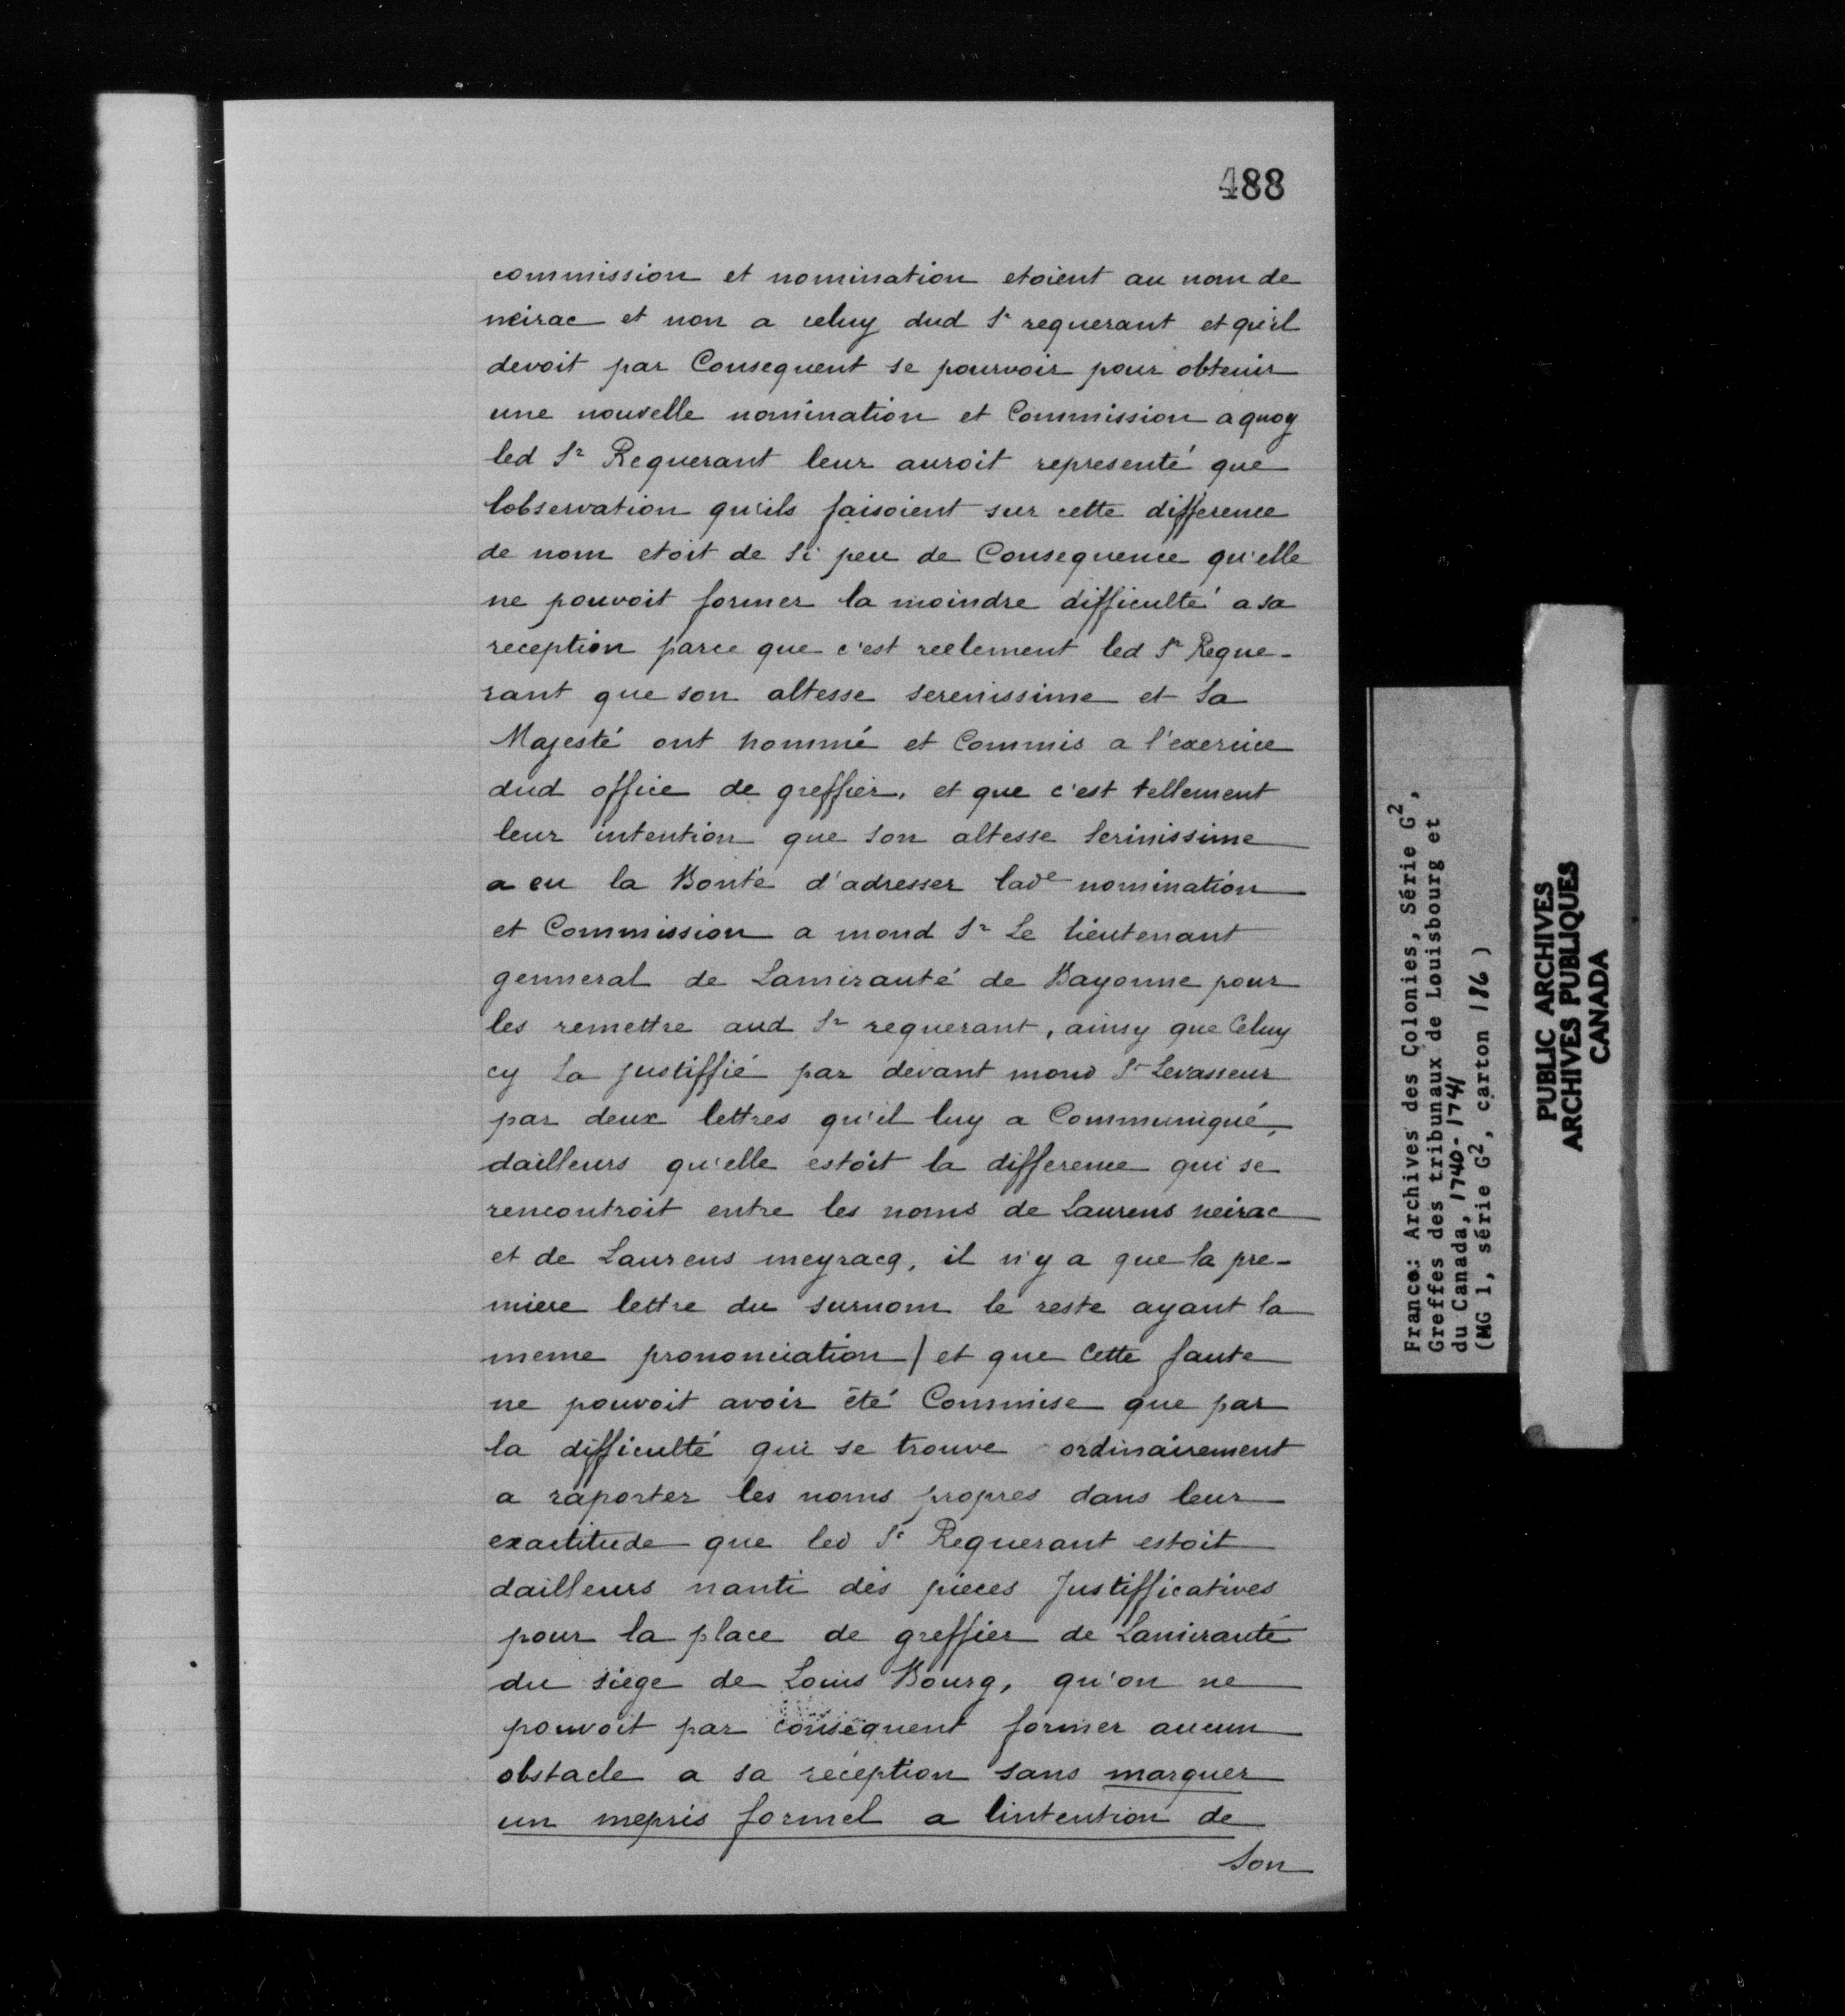 488
commission et nomination etoient au nom de
neirac et non a celuy dud Sr requerant et qu'il
devoit par Consequent se pourvoir pour obtenir
une nouvelle nomination et Commission a quoy
led Sr Requerant leur auroit representé que
lobservation qu'ils faisoient sur cette difference
de nom etoit de Si peu de Consequence qu'elle
ne pouvoit former la moindre difficulté a sa
reception parce que c'est reelement led Sr Reque-
rant que son altesse serenissime et Sa
Majesté ont nommé et Commis a l'exercice
dud office de greffier, et que c'est tellement
leur intention que Son altesse Serinissime
a eu la Bonté d'adresser lade nomination
et Commission a mond Sr Le lieutenant
genneral de Lamirauté de Bayonne pour
les remettre aud Sr requerant, ainsy que Celuy
cy La justiffié par devant mond Sr Levasseur
par deux lettres qu'il luy a Communiqué,
dailleurs qu'elle estoit la difference qui se
rencontroit entre les noms de Laurens neirac
et de Laurens meyracq, il n'y a que la pre-
miere lettre du surnom le reste ayant la
meme prononciation) et que Cette faute
ne pouvoit avoir été Commise que par
la difficulté qui se trouve ordinairement
a raporter les noms propres dans leur
exactitude que led Sr Requerant estoit
dailleurs nanti des pieces Justifficatives
pour la place de greffier de Lamirauté
du siege de Louis Bourg, qu'on ne
pouvoit par consequent former aucun
obstacle a sa reception sans marquer
un mepris formel a lintention de
Son
France: Archives des Colonies, Série G2,
Greffes des tribunaux de Louisbourg et
du Canada, 1740-1741
(MG 1, série G2, carton 186)
PUBLIC ARCHIVES
ARCHIVES PUBLIQUES
CANADA